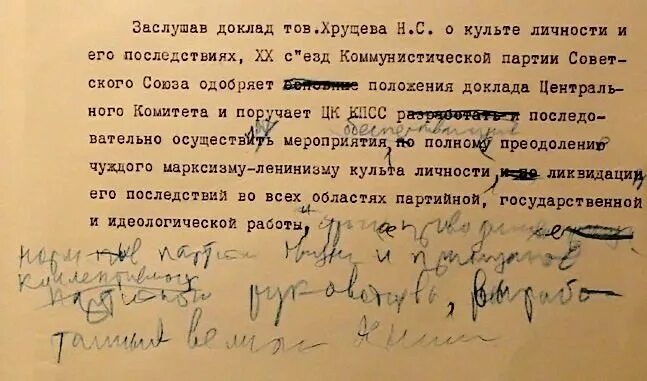 Заслушав доклад тов.Хрущева Н.С. о культе личности и
его последствиях, XX с"езд Коммунистической партии Совет-
ского Союза одобряет основные положения доклада Централь-
ного Комитета и поручает ЦК КПСС разработать и последо-
обеспечивающие
вательно осуществить мероприятия, по полному преодолению
чуждого марксизму-ленинизму культа личности, и по ликвидации
его последствий во всех областях партийной, государственной
и идеологической работы,
норм партийной жизни и принципов
коллективного
партийного руководства, вырабо-
танных великим